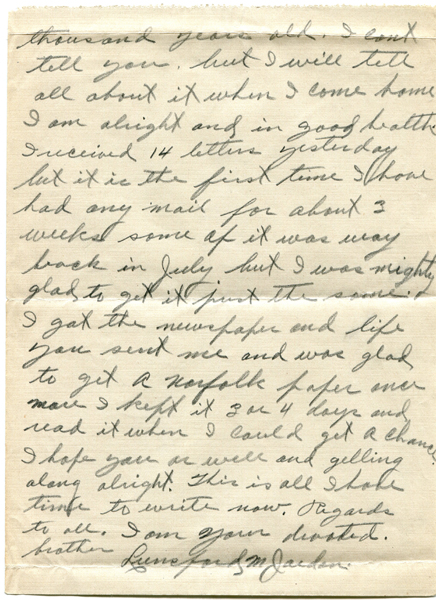 thousand years old. I cant
tell you. but I will tell
all about it when I come home
I am alright and in good health
I received 14 letters yesterday
but it is the first time I have
had any mail for about 3
weeks some of it was way
back in July but I was mighty
glad to get it just the same.
I got the newspaper and life
you sent me and was glad
to get a Norfolk paper once
more I kept it 3 or 4 days and
read it when I could get a chance.
I hope you or well and getting
along alright. This is all I have
time to write now. Regards
to all. I am your devoted.
brother Lunsford M